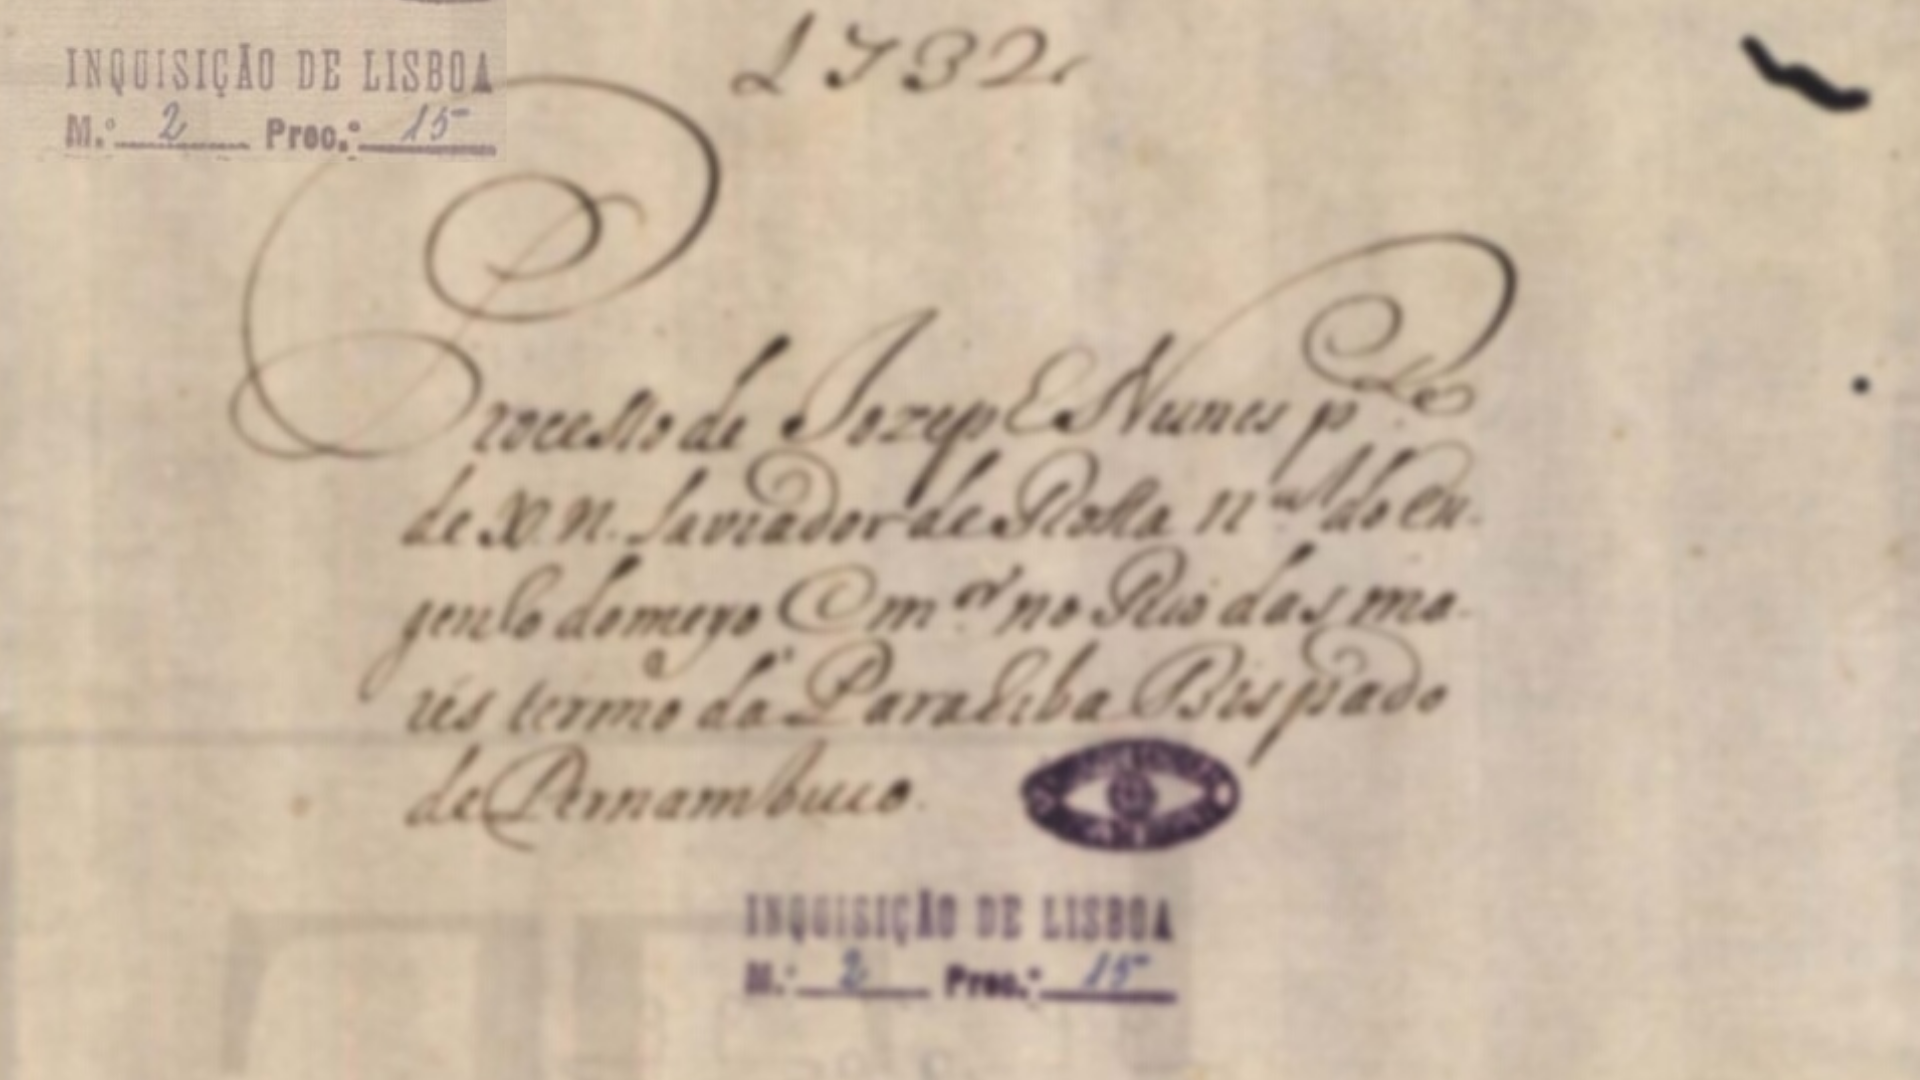 INQUISIÇÃO DE LISBOA
M.º 2 Proc.º 15
1732
Processo de Jozeph Nunes p.
de X. N. lavrador de Rossa n.al do en-
genho do meyo e m.or no Rio das ma-
rés termo da Parahiba Bispado
de Pernambuco.
INQUISIÇÃO DE LISBOA
M.º 2 Proc.º 15